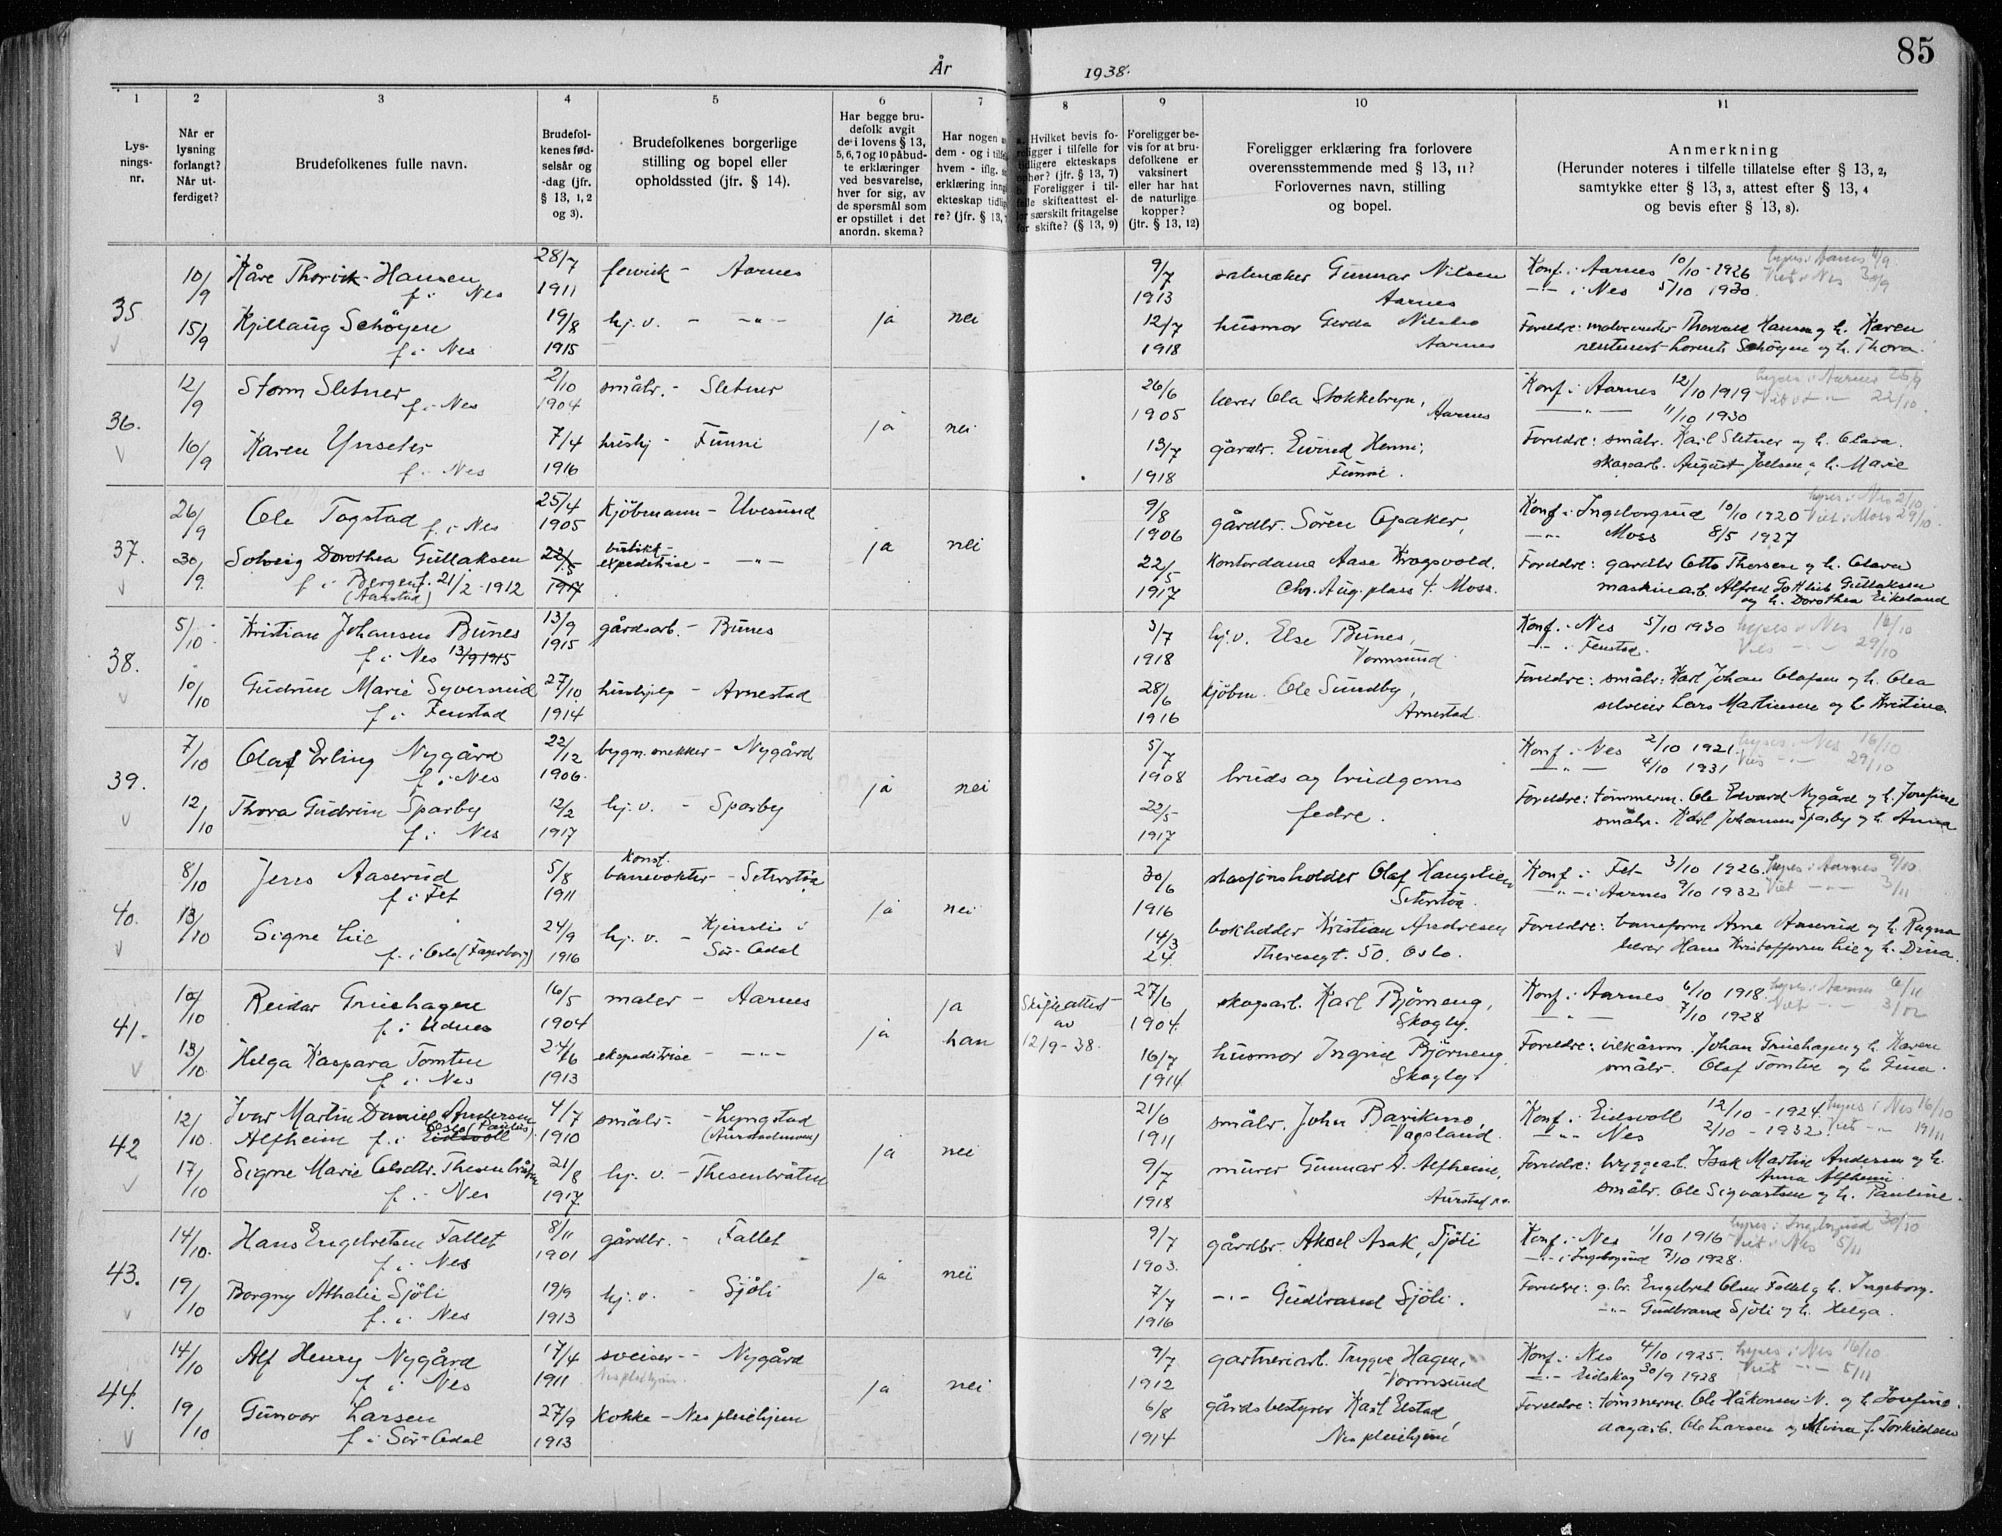 85
År 1938.
1 2 3 4 5 6 7 8 9 10 11
Lys-
nings-
nr.
Når er
lysning
forlangt?
Når ut-
ferdiget?
Brudefolkenes fulle navn.
Brudefol-
kenes fød-
selsår og
-dag (jfr.
§ 13, 1, 2
og 3).
Brudefolkenes borgerlige
stilling og bopel eller
opholdssted (jfr. § 14).
Har begge bru-
defolk avgit
de i lovens § 13,
5, 6, 7 og 10 påbud-
te erklæringer
ved besvarelse,
hver for sig, av
de spørsmål som
er opstillet i det
anordn. skema?
Har nogen a
dem - og i tilfe
hvem - iflg.
erklæring inng
ekteskap tidlig
re? (jfr. § 13,
a. Hvilket bevis fo-
religger i tilfelle for
tidligere ekteskaps
ophør? (jfr. § 13, 7)
b. Foreligger i til-
felle skifteattest el-
ler særskilt fritagelse
for skifte? (§ 13, 9)
Foreligger be-
vis for at bru-
defolkene er
vaksinert
eller har hat
de naturlige
kopper?
(jfr. § 13, 12)
Foreligger erklæring fra forlovere
overensstemmende med § 13, 11?
Forlovernes navn, stilling
og bopel.
Anmerkning
(Herunder noteres i tilfelle tillatelse efter § 13, 2,
samtykke efter § 13, 3, attest efter § 13, 4
og bevis efter § 13, 8).
35.
10/9 Kåre Thorvik-Hansen
f. i Nes
28/7 1911
Aarnes
9/7 1913
salmaker Gunnar Nilsen
Aarnes
Konf. i Aarnes 10/10 - 1926 lyses i Aarnes 11/9
-"- i Nes 5/10 1930. Viet i Nes 30/9
15/9 Kjellaug Schøyen
f. i Nes
19/8 1915
hj. v. - -"-
ja nei
12/7 1918
husmor Gerda Nilsen
Aarnes
Foreldre: malermester Thorvald Hansen og h. Karen
Schøyen og h. Thora.
36.
12/9 Storm Sletner
f. i Nes
2/10 1904
småbr. - Sletner
26/6 1905
lærer Ola Stokkebryn,
Aarnes
Konf. i Aarnes 12/10 1919 lyses i Aarnes 25/9
-"- 11/10 1930 Viet i -"- 22/10.
16/9 Karen Ynseter
f. i Nes
7/4 1916
hushj. - Funni
ja nei
13/7 1918
gårdbr. Eivind Henni,
Funni.
Foreldre: småbr. Karl Sletner og h. Olava.
skogsarb. August Joelsen og h. Marie
37.
26/9 Ole Togstad f. i Nes
25/4 1905
Kjøbmann - Uvesund
9/8 1906
gårdbr. Søren Opaker,
Konf. i Ingeborgrud 10/10 1920 lyses i Nes 2/10
-"- Moss 8/5 1927 Viet i Moss 29/10.
30/9 Solveig Dorothea Gullaksen
f. i Bergen f. 21/2 - 1912
(Aarstad)
22/5 1917
butikk-
expeditrise - -"-
ja nei
22/5 1917
Kontordame Aase Krogsvold.
Chr. Aug. plass 4. Moss.
Foreldre: gardbr Otto Thorsen og h. Olava
maskinarb. Alfred Gottlieb Gullaksen
og h. Dorothea Eikeland
38.
5/10 Kristian Johansen Bunes
f. i Nes 13/9 1915
13/9 1915
gårdsarb. - Bunes
3/7 1918
hj. v. Else Bunes,
Vormsund
Konf. i Nes 5/10 1930 lyses i Nes 16/10
-"- i Fenstad. Viet -"- 29/10
10/10 Gudrun Marie Syversrud
f. i Fenstad
27/10 1914
hushjelp - Arnestad
28/6 1916
Kjøbm. Ole Sundby,
Arnestad.
Foreldre: småbr. Karl Johan Olafsen og h. Olea
selveier Lars Martinsen og h. Kristina.
39.
7/10 Olaf Erling Nygård
f. i Nes
22/12 1906.
bygn. snekker - Nygård
5/7 1908
bruds og brudgoms
Konf. i Nes 2/10 1921. lyses i Nes 16/10
-"- 4/10 1931 Viet -"- 29/10
12/10 Thora Gudrun Sparby
f. i Nes
12/2 1917
hj. v. - Sparby
ja nei
22/5 1917
fedre.
Foreldre: tømmerm. Ole Edvard Nygård og h. Josefine
småbr. Karl Johansen Sparby og h. Anna
40.
8/10 Jens Aaserud
f. i Fet
5/8 1911
Konst.
banevokter - Seterstøa
30/6 1916
stasjonsholder Olaf Haugelien
Seterstøa
Konf. i Fet 3/10 1926. lyses i Aarnes 9/10
-"- i Aarnes 9/10 1932 Viet -"- 3/11
13/10 Signe Lie
f. i Oslo (Fagerborg)
24/9 1916
hj. v. - Kjernli i
Sør-Odal
ja nei
14/3 24.
bokholder Kristian Andresen
Theresegt. 50. Oslo.
Foreldre: baneform. Arne Aaserud og h. Ragna
lærer Hans Kristoffersen Lie og h. Dina.
41.
10/10 Reidar Gruehagen
f. i Udnes
16/5 1904
maler - Aarnes
ja
han
Skifteattest
av
12/9 - 38.
27/6 1904.
skogsarb. Karl Bjørneng,
Skogly.
Konf. i Aarnes 6/10 1918. lyses i Aarnes 6/11
-"- 7/10 1928 Viet - 3/12
13/10 Helga Kaspara Tomten
f. i Nes
24/6 1913
ekspeditrise - -"-
ja
16/7 1914
husmor Ingrid Bjørneng
Skogly.
Foreldre: vilkårsm. Johan Gruehagen og h. Karen
småbr. Olaf Tomter og h. Gina.
42
12/10. Ivar Martin Daniel Andersen
Alfheim f. i Eidsvoll Oslo (Paulus)
4/7 1910
småbr. - Lyngstad
(Aurstadmoen)
21/6 1911
småbr. John Barikmo,
Vagsland.
Konf. i Eidsvoll 12/10 - 1924. lyses i Nes 16/10
-"- Nes 2/10 - 1932. Viet -"- 19/11
17/10 Signe Marie Olsdtr. Thesenbråten
f. i Nes
21/8 1917
hj. v. - Thesenbråten
ja nei
9/7 1918
murer Gunnar A. Alfheim,
Aurstad p.o.
Foreldre: bryggearb. Isak Martin Andersen og h.
Anna Alfheim.
småbr. Ole Sigvartsen og h. Pauline.
43.
14/10. Hans Engebretsen Fallet
f. i Nes
8/11 1901
gårdbr. - Fallet
9/7 1903.
gårdbr. Aksel Asak, Sjøli
Konf. i Nes 1/10 1916 lyses i Ingeborgrud 30/10
-"- i Ingeborgrud 7/10 1928. Viet i Nes 5/11
19/10 Borgny Athalie Sjøli
f. i Nes
19/9 1913
hj. v. - Sjøli
ja nei
7/7 1916
-"- Gudbrand Sjøli.
Foreldre: g.br. Engebret Olsen Fallet og h. Ingeborg.
-"- Gudbrand Sjøli og h. Helga.
44.
14/10 Alf Henry Nygård
f. i Nes
17/4 1911
sveiser - Nygård
Nes pleiehjem.
9/7 1912
gartneriarb. Trygve Hagen,
Vormsund
Konf. i Nes 4/10 1925. lyses i Nes 16/10
-"- Eidskog 30/9 1928 Viet -"- 5/11
19/10 Gunvor Larsen
f. i Sør-Odal
27/9 1913
Kokke - Nes pleiehjem
ja nei
6/8 1914
gårdsbestyrer Karl Elstad,
Nes pleiehjem
Foreldre: tømmerm. Ole Håkonsen N. og h. Josefine.
dagarb. Ole Larsen og Mina f. Torkildsen